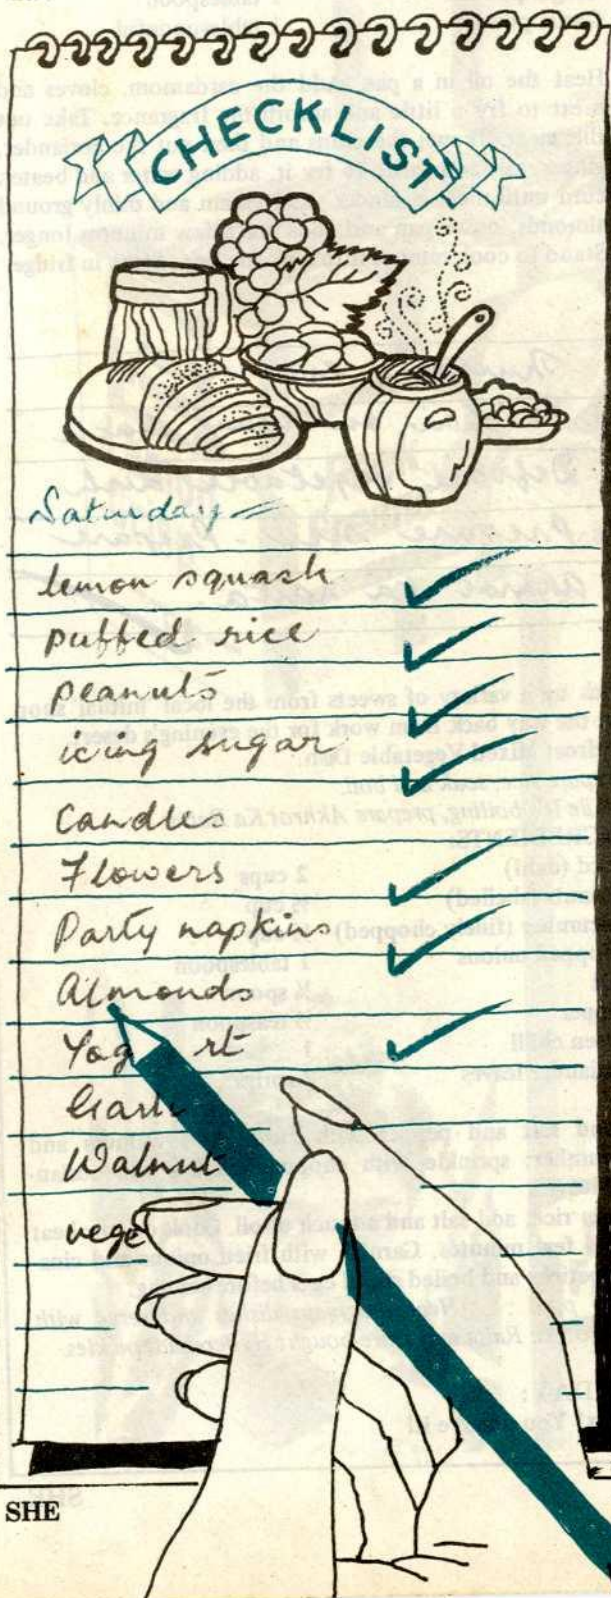 CHECKLIST
Saturday
lemon squash
puffed rice
peanuts
icing sugar
Candles
Flowers
Party napkins
Almonds
Yog rt
Walnut
vege
SHE